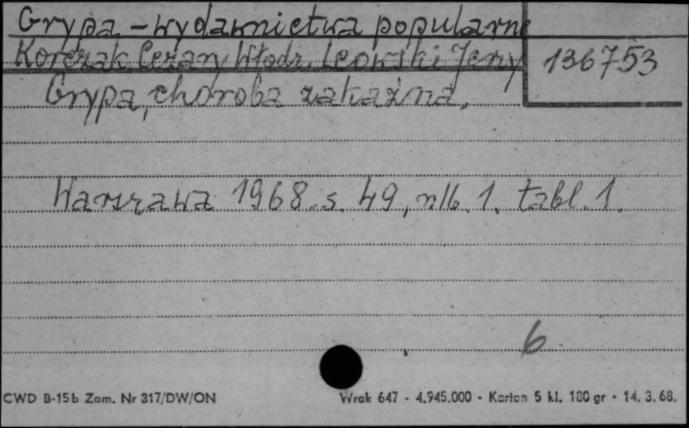 Grypa - wydawnictwa popularne
Korczak Cezary Włodz. Leowski Jerzy
136753
Grypa, choroba zakaźna.
Warszawa 1968. s. 49, nlb. 1. tabl. 1.
6
CWD B-15b Zam. Nr 317/DW/ON
Wrak 647 - 4.945.000 - Karton 5 kl. 180 gr - 14. 3. 68.